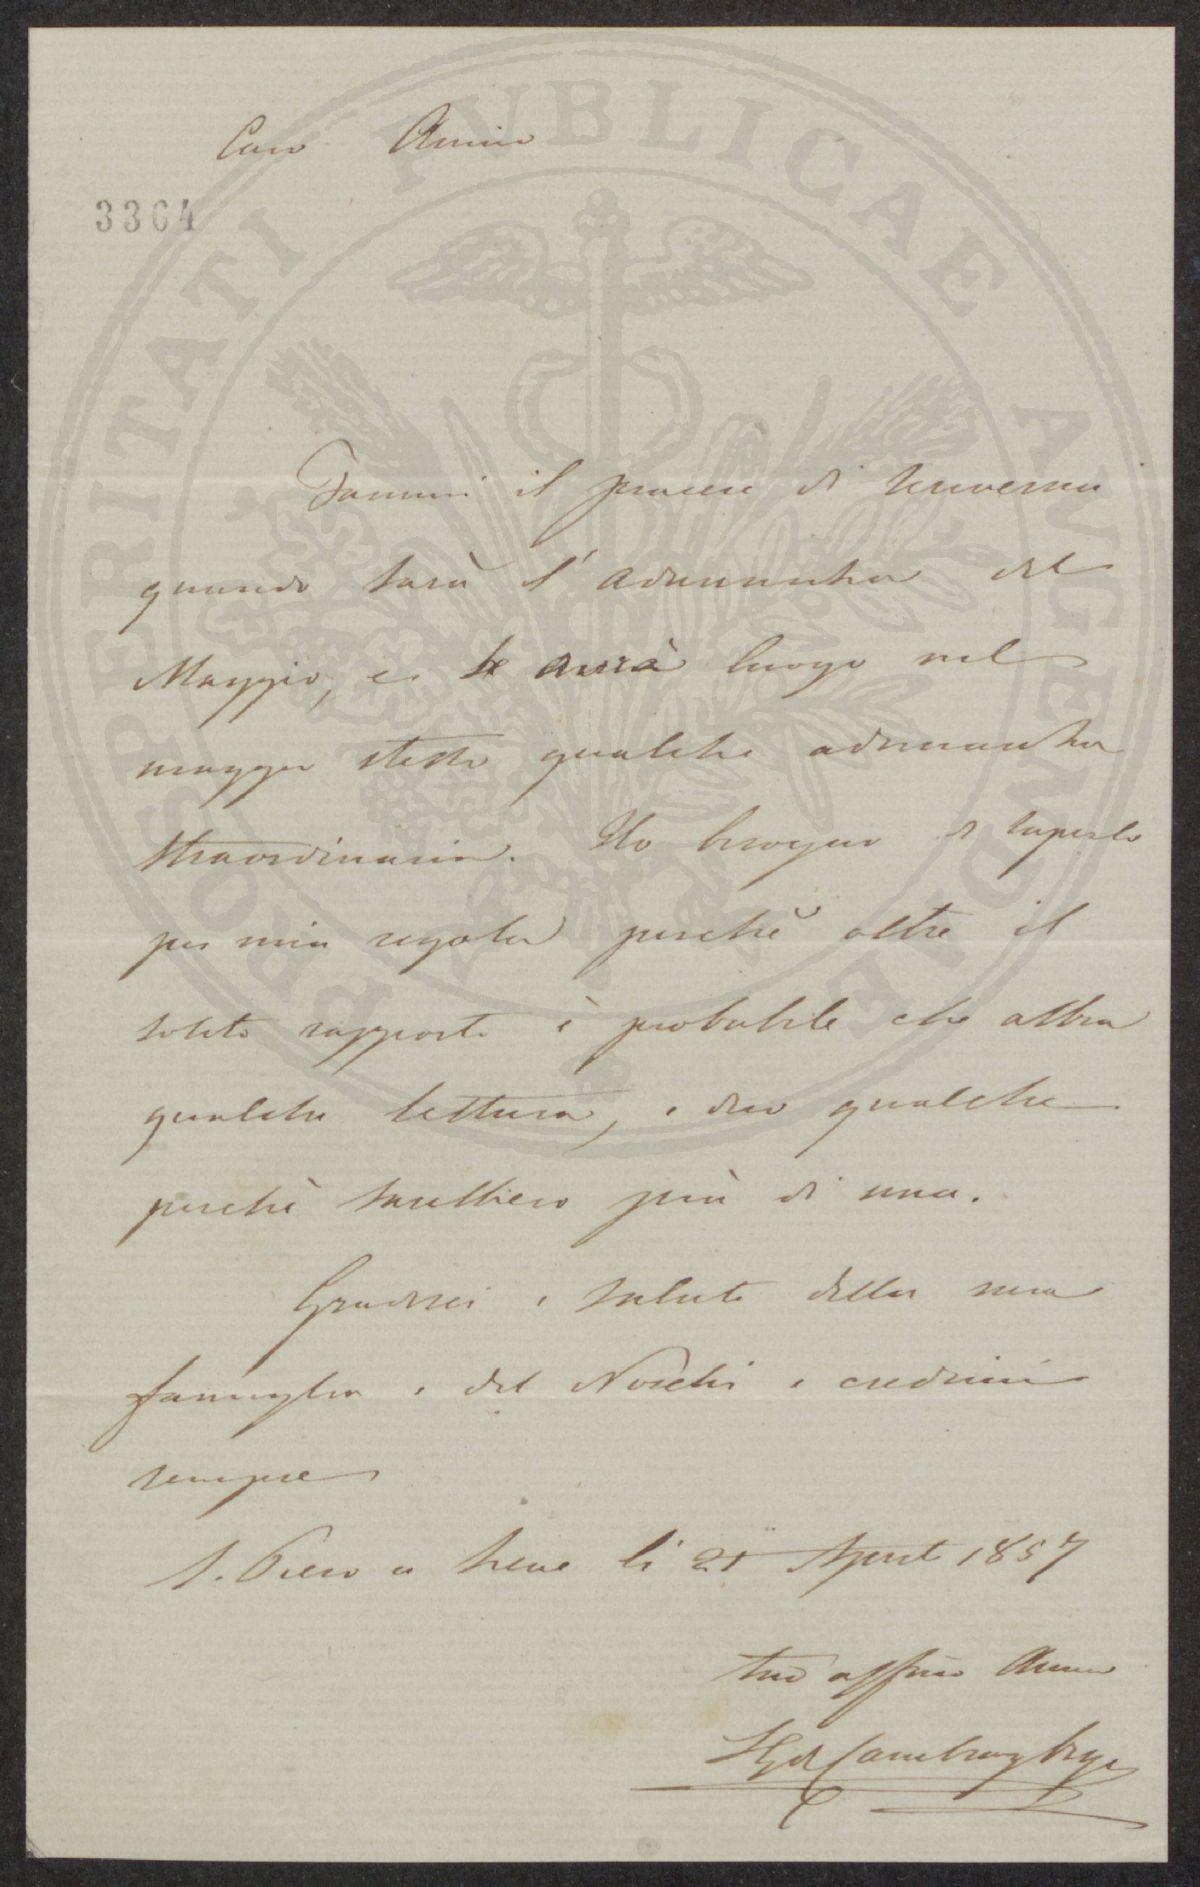 Caro Amico
3364
Fammi il piacere di scrivermi
quando sarà l'adunanza del
Maggio, e se avrà luogo nel
maggio stesso qualche adunanza
straordinaria. Ho bisogno di saperlo
per mia regola perchè oltre il
solito rapporto è probabile che abbia
qualche lettura, e dico qualche
perchè sarebbero più di una.
Gradisci i saluti della mia
famiglia e del Noschi e credimi
sempre
S. Piero a Sieve li 21 Aprile 1857
tuo affmo Amico
Cambray Digny
PROSPERITATI PUBLICAE AUGENDAE